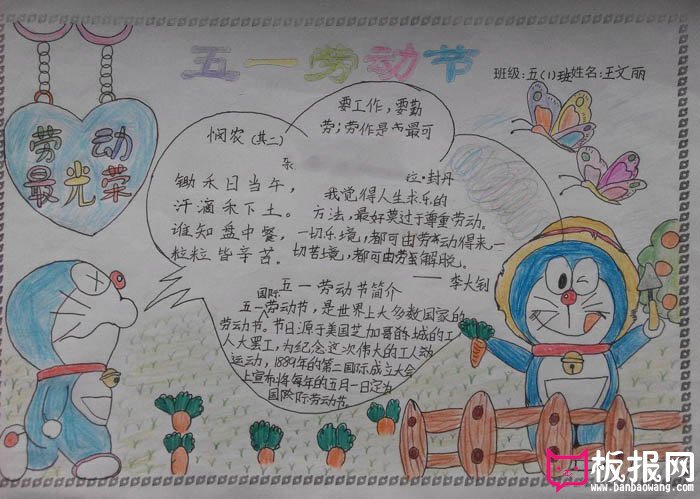 五一劳动节
班级:五(1)班姓名:王文丽
劳动
最光荣
悯农(其二)
锄禾日当午,
汗滴禾下土。
谁知盘中餐,
粒粒皆辛苦。
要工作,要勤
劳;劳作是最可
·封丹
我觉得人生求乐的
方法,最好莫过于尊重劳动。
一切乐境,都可由劳动得来,一
切苦境,都可由劳解脱。
——李大钊
国际五一劳动节简介
五一劳动节,是世界上大多数国家的
劳动节。节日源于美国芝加哥城的工
人大罢工,为纪念这次伟大的工人
运动,1889年的第二国际成立大会
上宣布将每年的五月一日定为
国际劳动节。
板报网
www.banbaowang.com